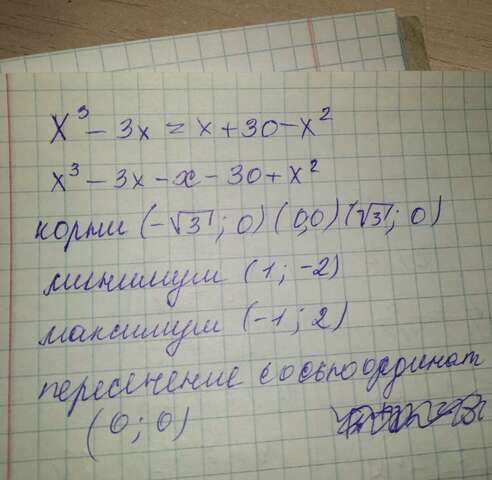 x³ - 3x = x + 30 - x²
x³ - 3x - x - 30 + x²
корни (-√3; 0) (0,0) (√3; 0)
минимум (1; -2)
максимум (-1; 2)
пересечение с осью ординат
(0; 0)